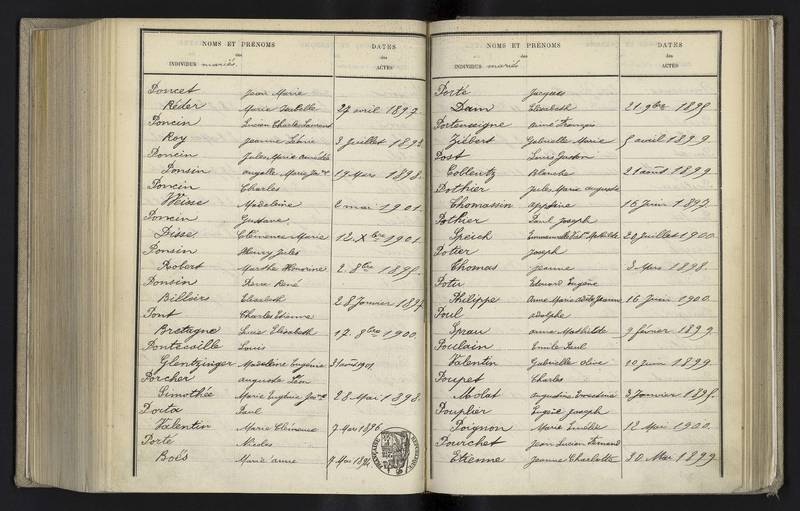 NOMS ET PRÉNOMS
des
INDIVIDUS mariés
DATES
des
ACTES
Poncet Jean Marie
Réder Marie Isabelle 27 avril 1897.
Poncin Lucien Charles Laurent
Roy Jeanne 3 Juillet
Poncin Jules Marie
Ponsin Marie 19 Mars 1898.
Poncin Charles
Weisse Madeleine 2 mai 1901.
Poncin Gustave
Disse Clémence Marie 12 Xbre 1901.
Ponsin Henry Jules
Robert Marthe Honorine 2. 8bre
Ponsin Pierre René
Billoirs Elisabeth 28 Janvier
Pont Charles Etienne
Bretagne Lucie Elisabeth 17. 8bre 1900.
Pontecaille Louis
Glentzinger Madeleine Eugénie 31 août 1901
Porcher auguste Léon
Timothée Marie Eugénie 28 Mai 1898.
Porta Paul
Valentin Marie Clémence 7 Mars 1896
Porté Nicolas
Boës Marie anne 9 Mai
NOMS ET PRÉNOMS
des
INDIVIDUS mariés
DATES
des
ACTES
Porté Jacques
Dam Elisabeth 21 9bre
Portenseigne Aimé François
Ziébert Gabrielle Marie 5 avril 1899.
Post Louis Gaston
Coblentz Blanche 21 août 1899
Pothier Jules Marie auguste
Thomassin 15 Juin 1897.
Pothier Paul Joseph
Speich Emmanuelle Mathilde 20 Juillet 1900.
Potier Joseph
Thomas Jeanne 3 Mars 1898.
Potu Edouard Eugène
Philippe Anne Marie Jeanne 16 Juin 1900.
Poul adolphe
Sprau anne Mathilde 9 février 1899
Poulain Emile Paul
Valentin Gabrielle Olive 10 Juin 1899.
Poupet Charles
Molat augustine 3 Janvier
Pouplier Eugène Joseph
Poignon Marie 12 Mai 1900.
Pourchet Jean Lucien Fernand
Etienne Jeanne Charlotte 30 Mai 1899